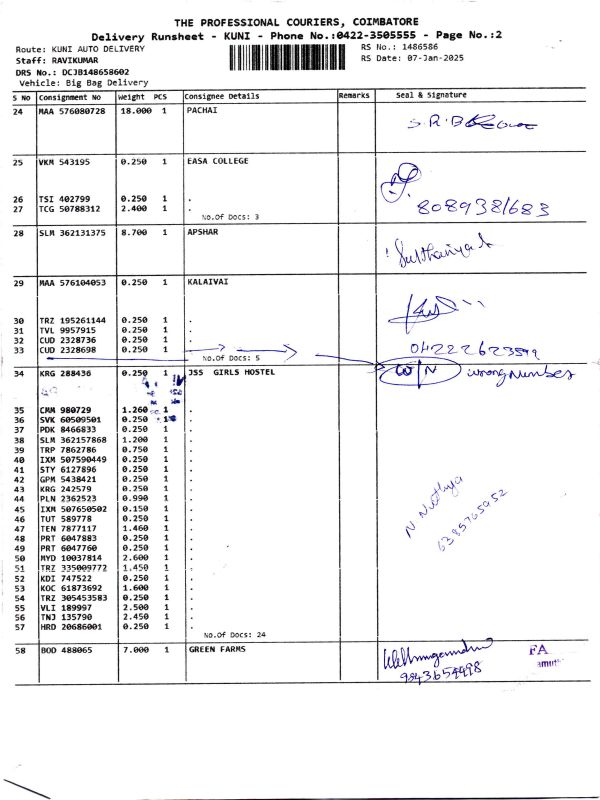 THE PROFESSIONAL COURIERS, COIMBATORE
Delivery Runsheet - KUNI - Phone No.:0422-3505555 - Page No.:2
Route: KUNI AUTO DELIVERY
RS No.: 1486586
Staff: RAVIKUMAR
RS Date: 07-Jan-2025
DRS No.: DCJB148658602
Vehicle: Big Bag Delivery
S No Consignment No Weight PCS Consignee Details Remarks Seal & Signature
24 MAA 576080728 18.000 1 PACHAI
25 VKM 543195 0.250 1 EASA COLLEGE
26 TSI 402799 0.250 1 .
27 TCG 50788312 2.400 1 .
No.Of Docs: 3
8089381683
28 SLM 362131375 8.700 1 APSHAR
29 MAA 576104053 0.250 1 KALAIVAI
30 TRZ 195261144 0.250 1 .
31 TVL 9957915 0.250 1 .
32 CUD 2328736 0.250 1 .
33 CUD 2328698 0.250 1 .
No.Of Docs: 5
34 KRG 288436 0.250 1 JSS GIRLS HOSTEL W/N wrong number
35 CMM 980729 1.260 1 .
36 SVK 60509501 0.250 1 .
37 PDK 8466833 0.250 1 .
38 SLM 362157868 1.200 1 .
39 TRP 7862786 0.750 1 .
40 IXM 507590449 0.250 1 .
41 STY 6127896 0.250 1 .
42 GPM 5438421 0.250 1 .
43 KRG 242579 0.250 1 .
44 PLN 2362523 0.990 1 .
45 IXM 507650502 0.150 1 .
46 TUT 589778 0.250 1 .
47 TEN 7877117 1.460 1 .
48 PRT 6047883 0.250 1 .
49 PRT 6047760 0.250 1 .
50 MYD 10037814 2.600 1 .
51 TRZ 335009772 1.450 1 .
52 KDI 747522 0.250 1 .
53 KOC 61873692 1.600 1 .
54 TRZ 305453583 0.250 1 .
55 VLI 189997 2.500 1 .
56 TNJ 135790 2.450 1 .
57 HRD 20686001 0.250 1 .
No.Of Docs: 24
N. Nithya
6385765952
58 BOD 488065 7.000 1 GREEN FARMS
FA
9843654498